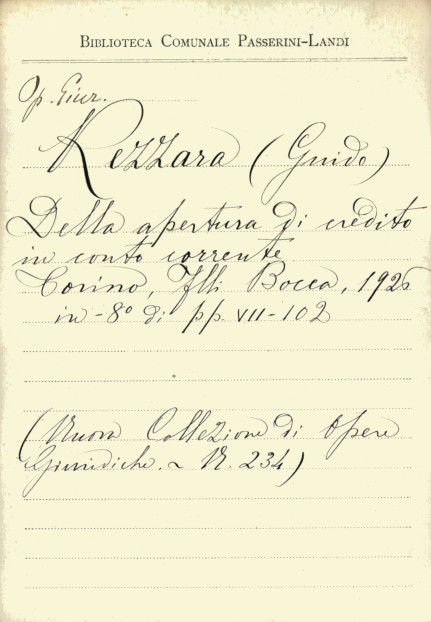 BIBLIOTECA COMUNALE PASSERINI-LANDI
Op. Giur.
Rezzara (Guido)
Della apertura di credito
in conto corrente
Torino, Flli Bocca, 1926
in-8° di pp. VII-102
(Nuova Collezione di Opere
Giuridiche. ~ N. 234)